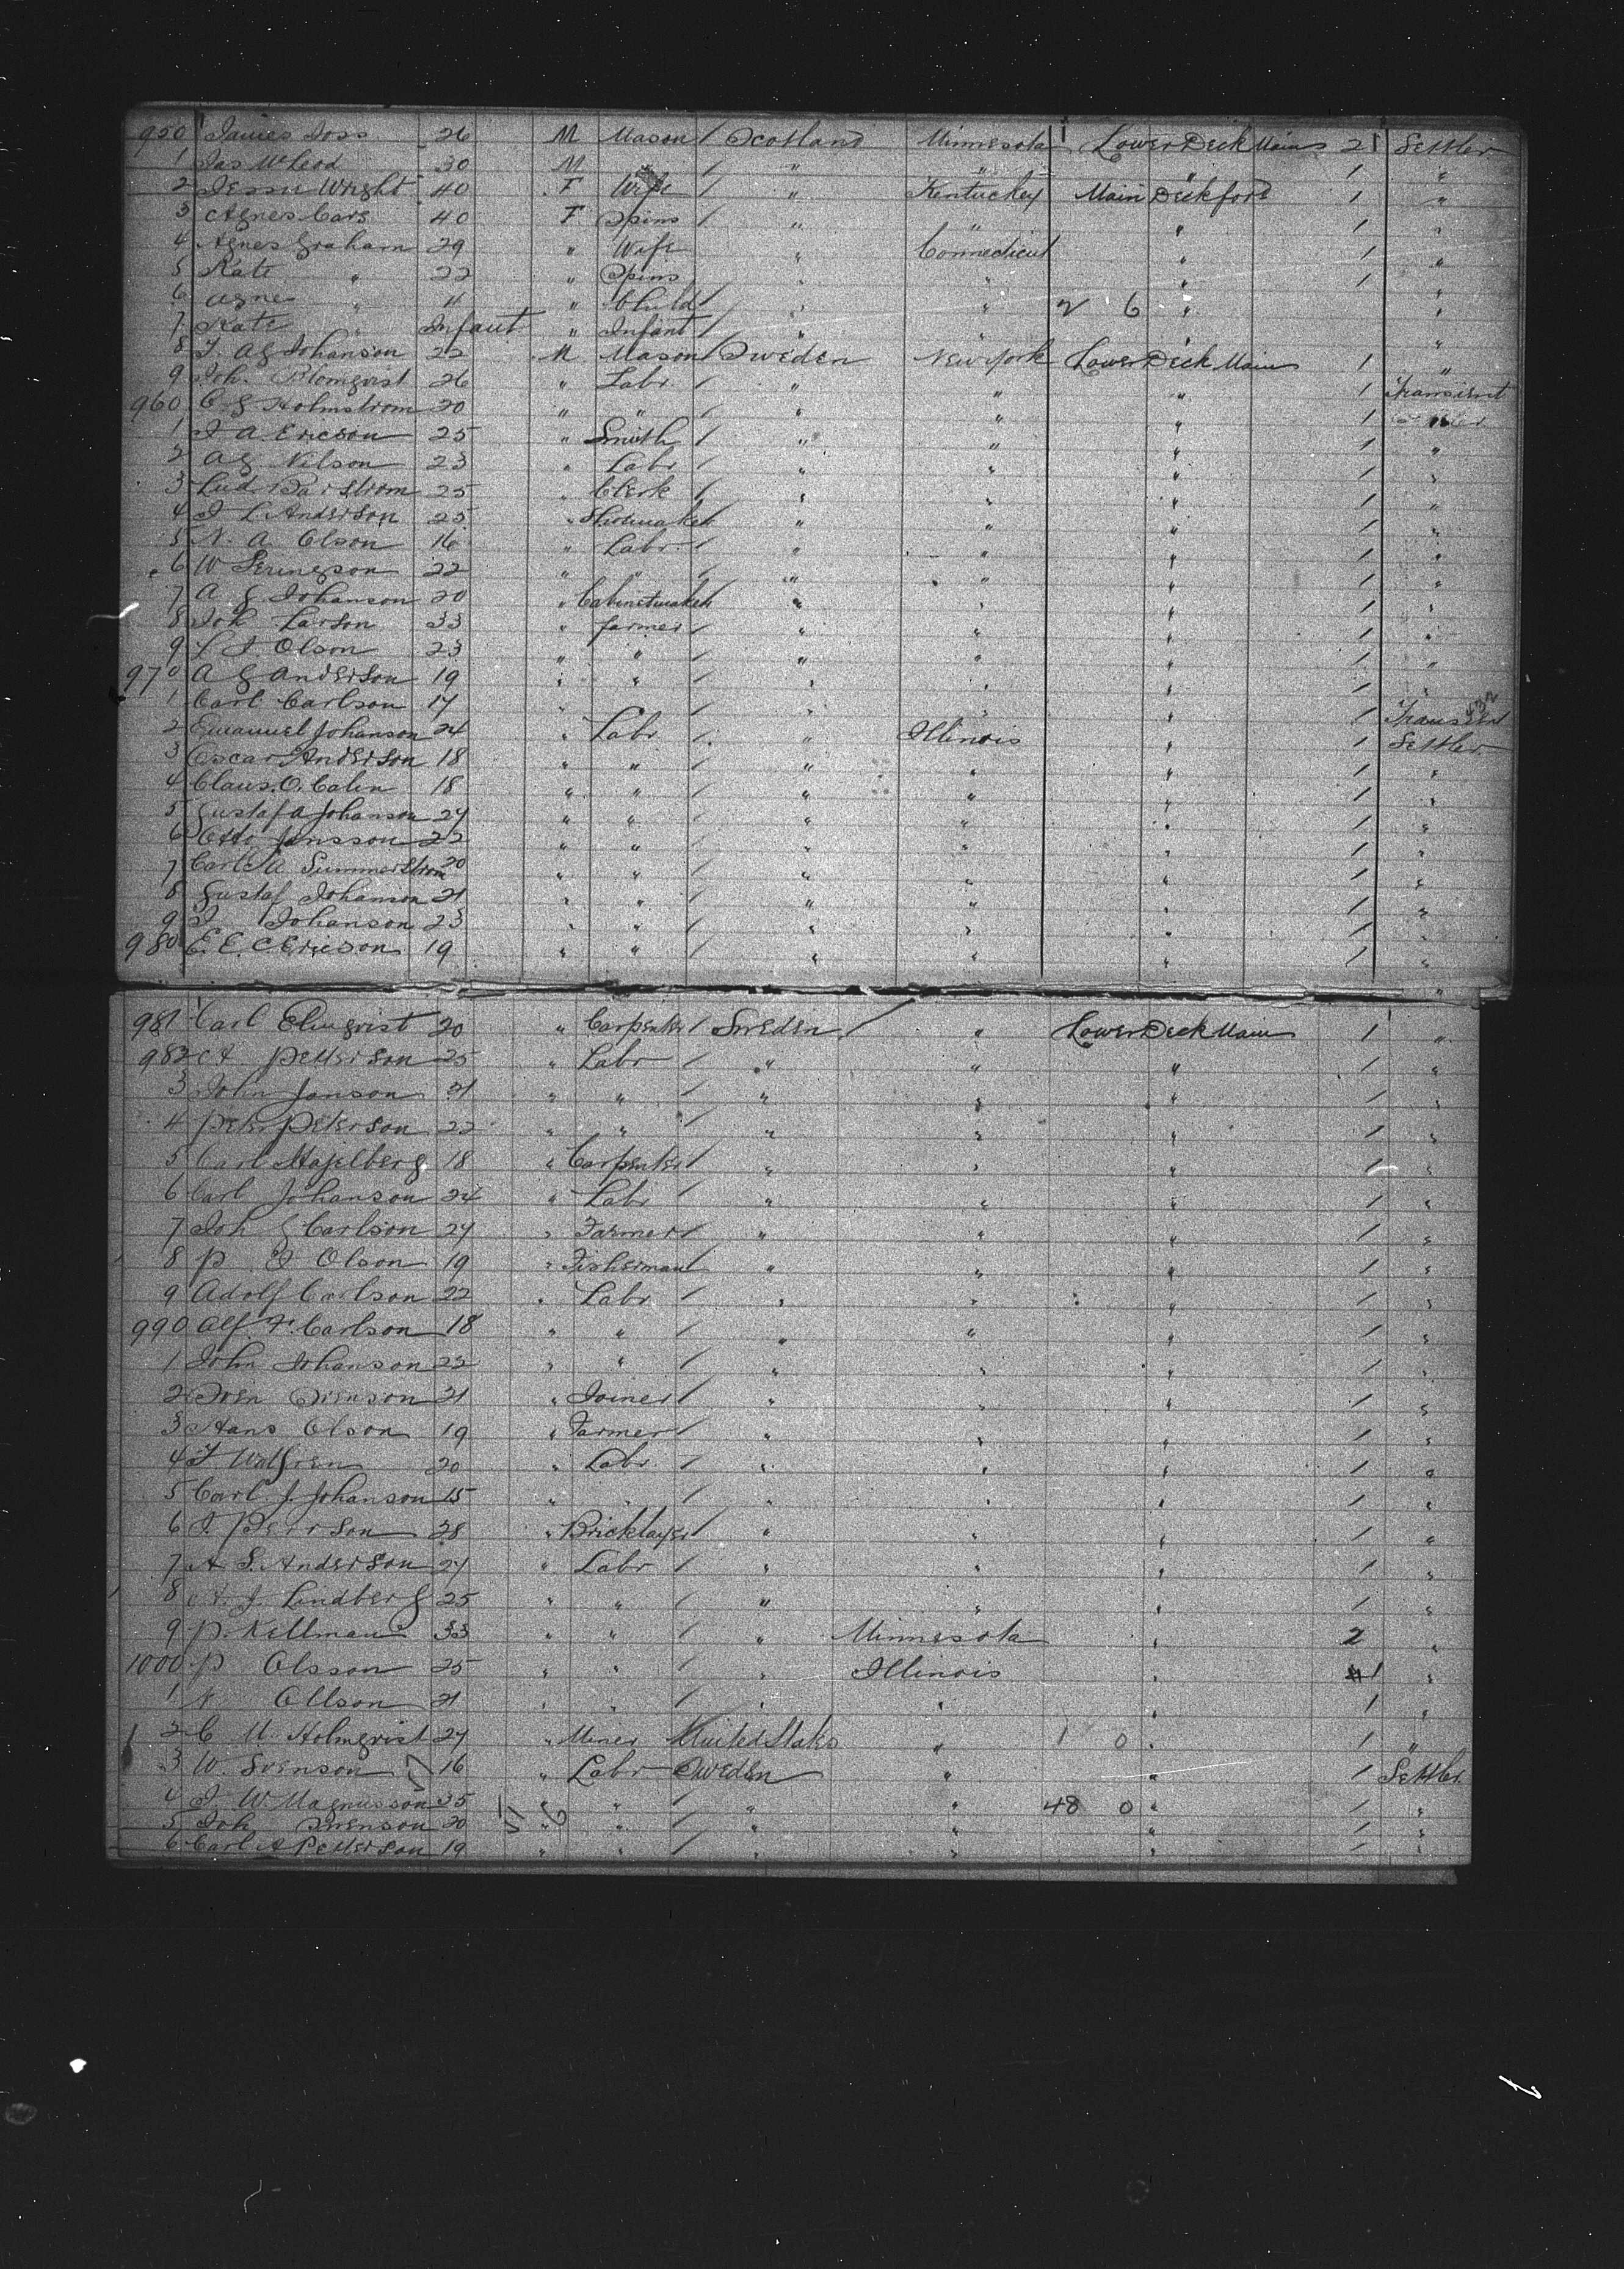 950 James Ross 26 M Mason / Scotland Minnesota Lower Deck Main 21 Settler
1 Jas McLeod 30 M " / " " " 1 "
2 Jessie Wright 40 F Wife / " Kentucky Main Deck ford 1 "
3 Agnes Cars 40 F Spins / " " " 1 "
4 Agnes Graham 29 " Wife " Connecticut " 1 "
5 Kate " 22 " Spins " " " 1 "
6 Agne " 11 " Child / " " 2 6 " "
7 Kate " Infant " Infant / " " " "
8 J. A G Johanson 22 M Mason / Sweden New York Lower Deck Main 1 "
9 Joh. Blomqvist 26 " Labr / " " " 1 Transient
960 C G Holmstrom 20 " " / " " " 1
1 J A Ericson 25 " Smith / " " " 1 "
2 A G Nilson 23 " Labr / " " " 1 "
3 Lud Barstrom 25 " Clerk / " " " 1 "
4 J L Anderson 25 " Shoemaker " " " 1 "
5 N. A. Olson 16 " Labr / " " " 1 "
6 W 22 " " / " " " 1 "
7 A G Johanson 20 " Cabinetmaker " " " 1 "
8 Joh Larson 33 " farmer / " " " 1 "
9 L J Olson 23 " " / " " " 1 "
970 A G Anderson 19 " " / " " " 1 "
1 Carl Carlson 17 " / " " " 1 Transient
2 Emanuel Johanson 24 " Labr / " Illinois " 1 Settler
3 Oscar Anderson 18 " " / " " " 1 "
4 Claus. O. Calin 18 " " / " " " 1 "
5 Gustaf A Johanson 27 " " / " " " 1 "
6 Otto Jonsson 22 " " / " " " 1 "
7 Carl A Summerstrom 20 " " / " " " 1 "
8 Gustaf Johanson 21 " " / " " " 1 "
9 J Johanson 23 " " / " " " 1 "
980 E. E. C Ericson 19 " " / " " " 1 "
981 Carl Elmqvist 20 " Carpenter / Sweden / " Lower Deck Main 1 "
982 A Petterson 25 " Labr / " " " 1 "
3 John Janson 21 " " / " " " 1 "
4 Peter Peterson 22 " " / " " " 1 "
5 Carl Hajelberg 18 " Carpenter / " " " 1 "
6 Carl Johanson 24 " Labr / " " " 1 "
7 Joh G Carlson 27 " Farmer / " " " 1 "
8 P J Olson 19 " Fisherman " " " 1 "
9 Adolf Carlson 22 " Labr / " " " 1 "
990 Alf. F. Carlson 18 " " / " " " 1 "
1 John Johanson 22 " " / " " " 1 "
2 Sven Svenson 21 " Joiner / " " " 1 "
3 Hans Olson 19 " Farmer / " " " 1 "
4 J Walgren 20 " Labr / " " " 1 "
5 Carl J. Johanson 15 " " / " " " 1 "
6 J. Person 28 " Bricklayer / " " " 1 "
7 A S. Anderson 27 " Labr / " " " 1 "
8 A. J. Lindberg 25 " " / " " " 1 "
9 P. Kellman 33 " " / " Minnesota " 2 "
1000 P Olsson 25 " " / " Illinois " 1 "
1 N Ollson 21 " " / " " " 1 "
2 C U. Holmqvist 27 " Miner United States " 1 0 " 1 "
3 W. Svenson 16 " Labr Sweden " " 1 Settler
4 J. W Magnusson 35 " " / " " 48 0 " 1 "
5 Joh Svenson 20 " " / " " " 1 "
6 Carl A Petterson 19 " " / " " " 1 "